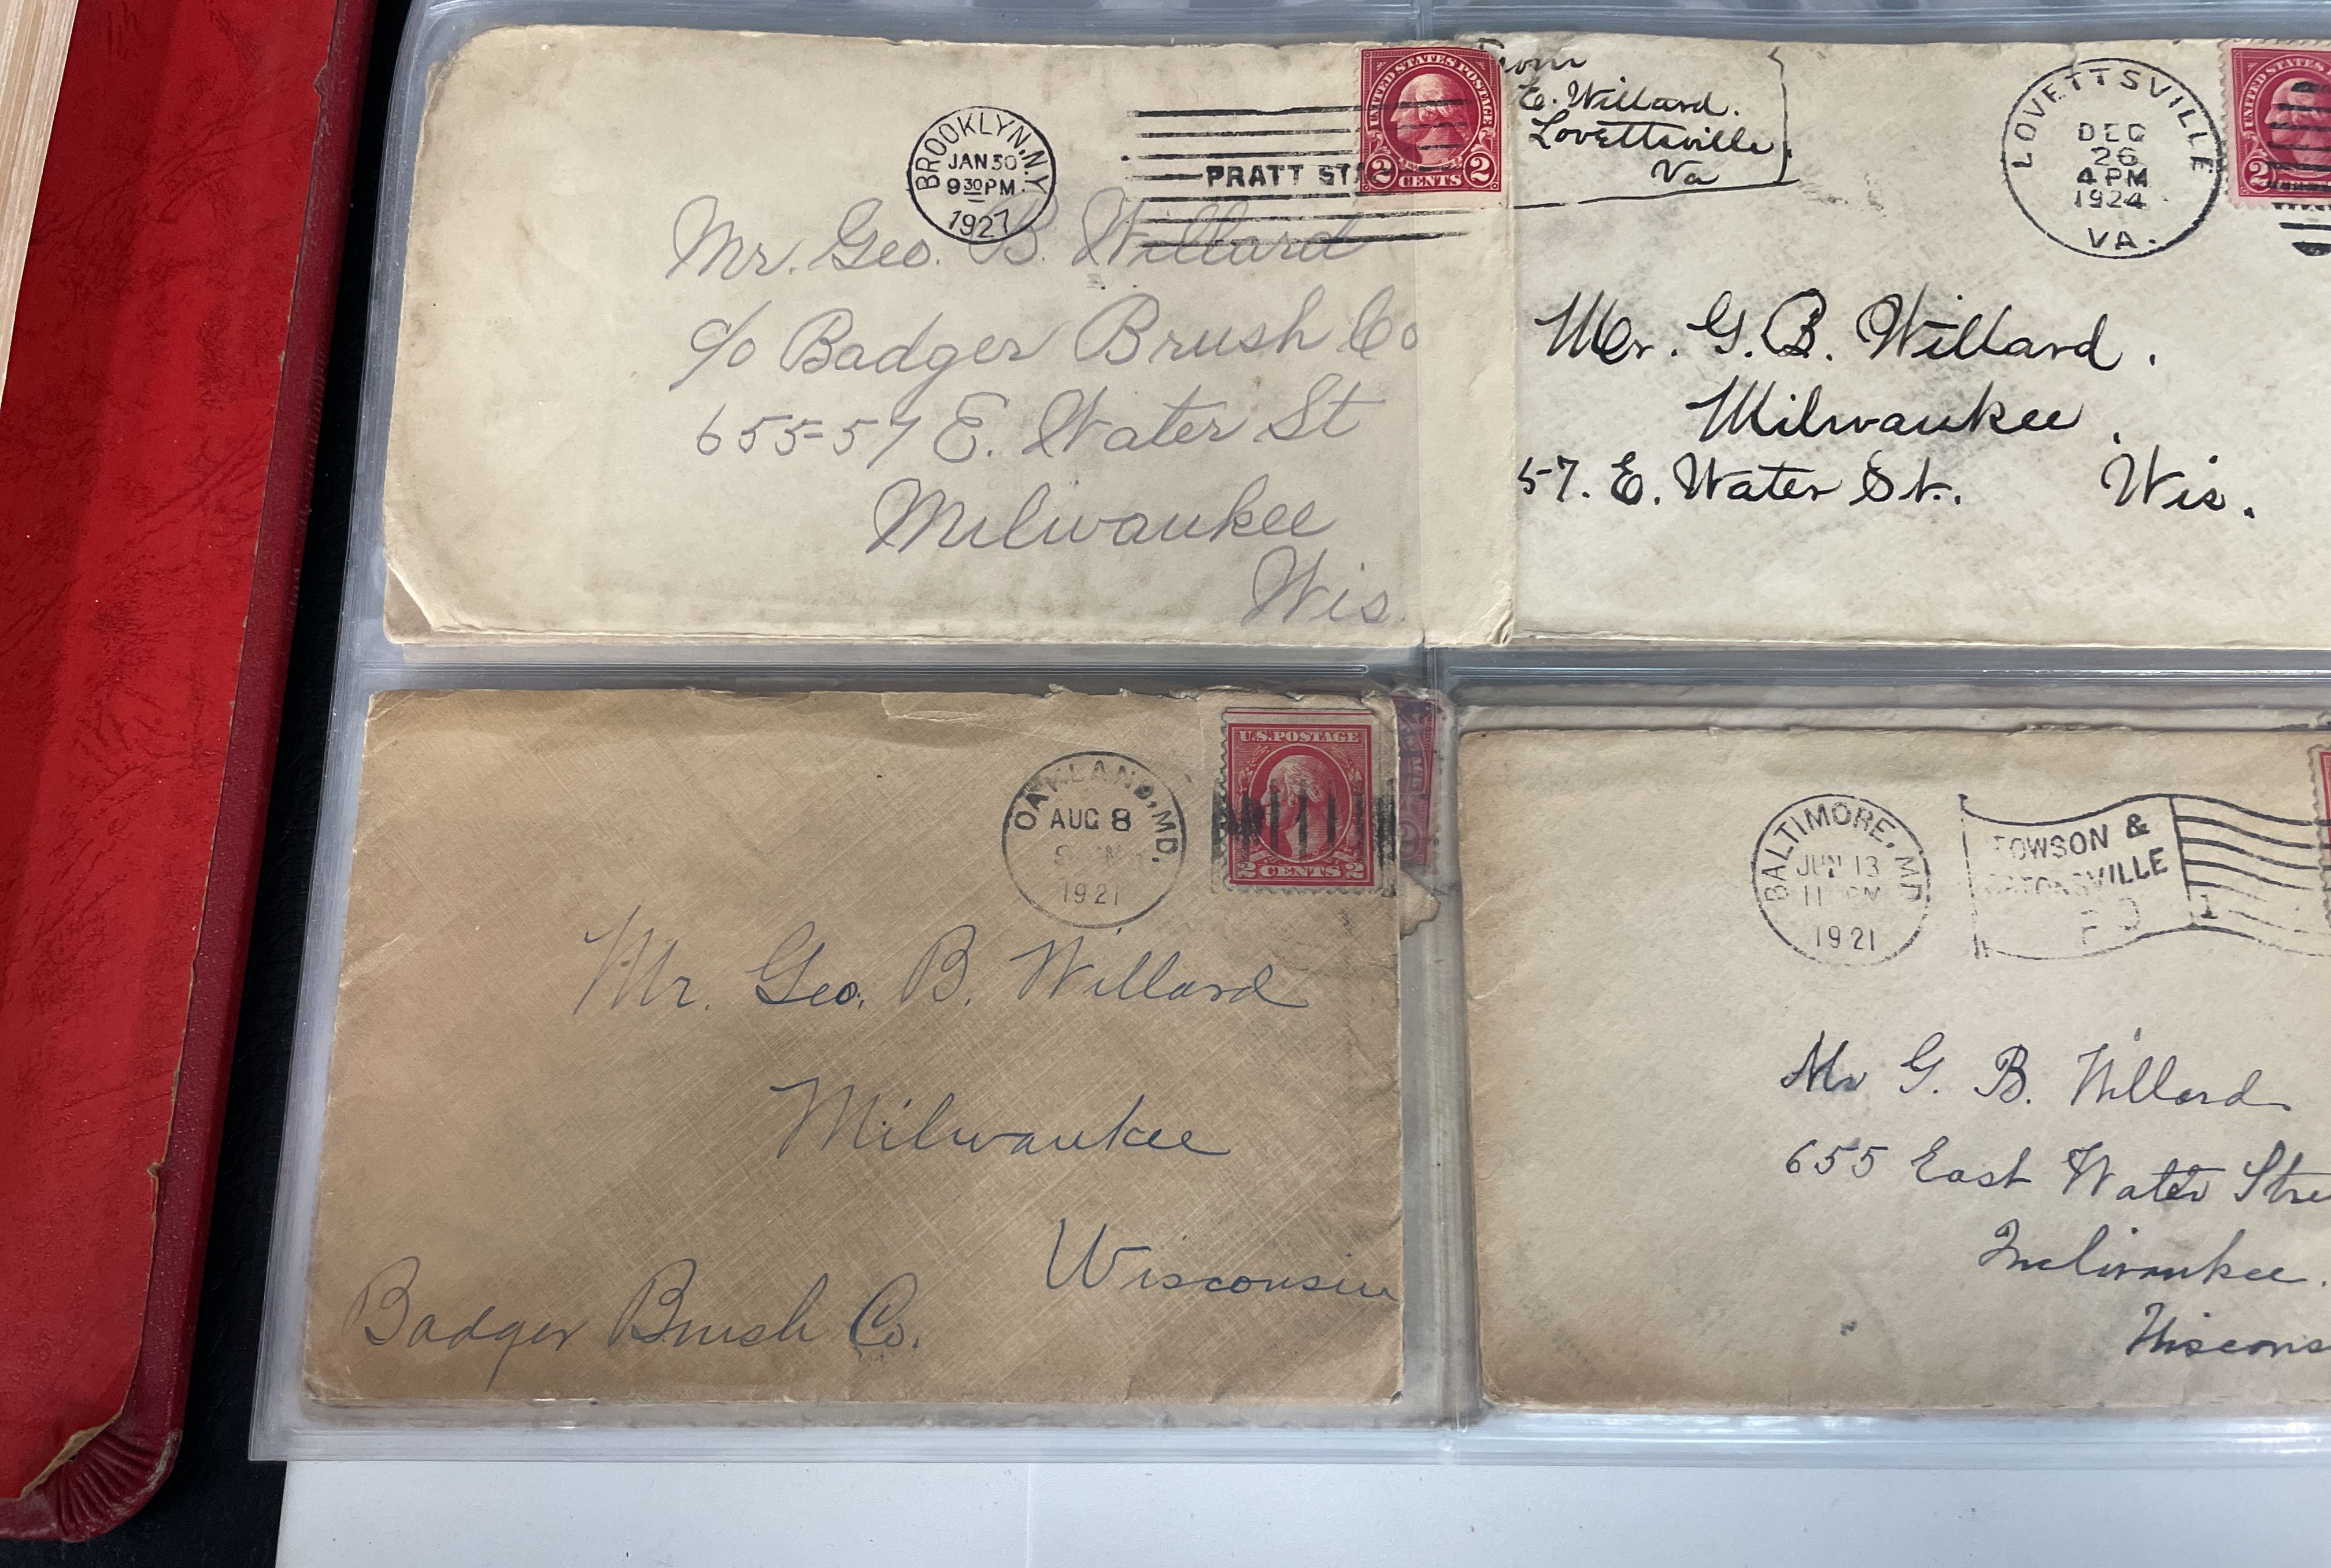 BROOKLYN, N.Y.
JAN 30
9 30 PM
1927
PRATT STA
UNITED STATES POSTAGE
2 CENTS 2
Mr. Geo. B. Willard
c/o Badger Brush Co
655-57 E. Water St
Milwaukee
Wis.
From
E. Willard.
Lovettsville,
Va
LOVETTSVILLE
DEC
26
4 PM
1924
VA.
UNITED STATES
2
Mr. G. B. Willard.
Milwaukee,
57. E. Water St. Wis.
OAKLAND, MD.
AUG 8
1921
U.S. POSTAGE
2 CENTS 2
Mr. Geo. B. Willard
Milwaukee
Wisconsin
Badger Brush Co.
BALTIMORE, MD
JUN 13
11 PM
1921
TOWSON &
CATONSVILLE
1
Mr G. B. Willard
655 East Water Stre
Milwaukee.
Wiscons